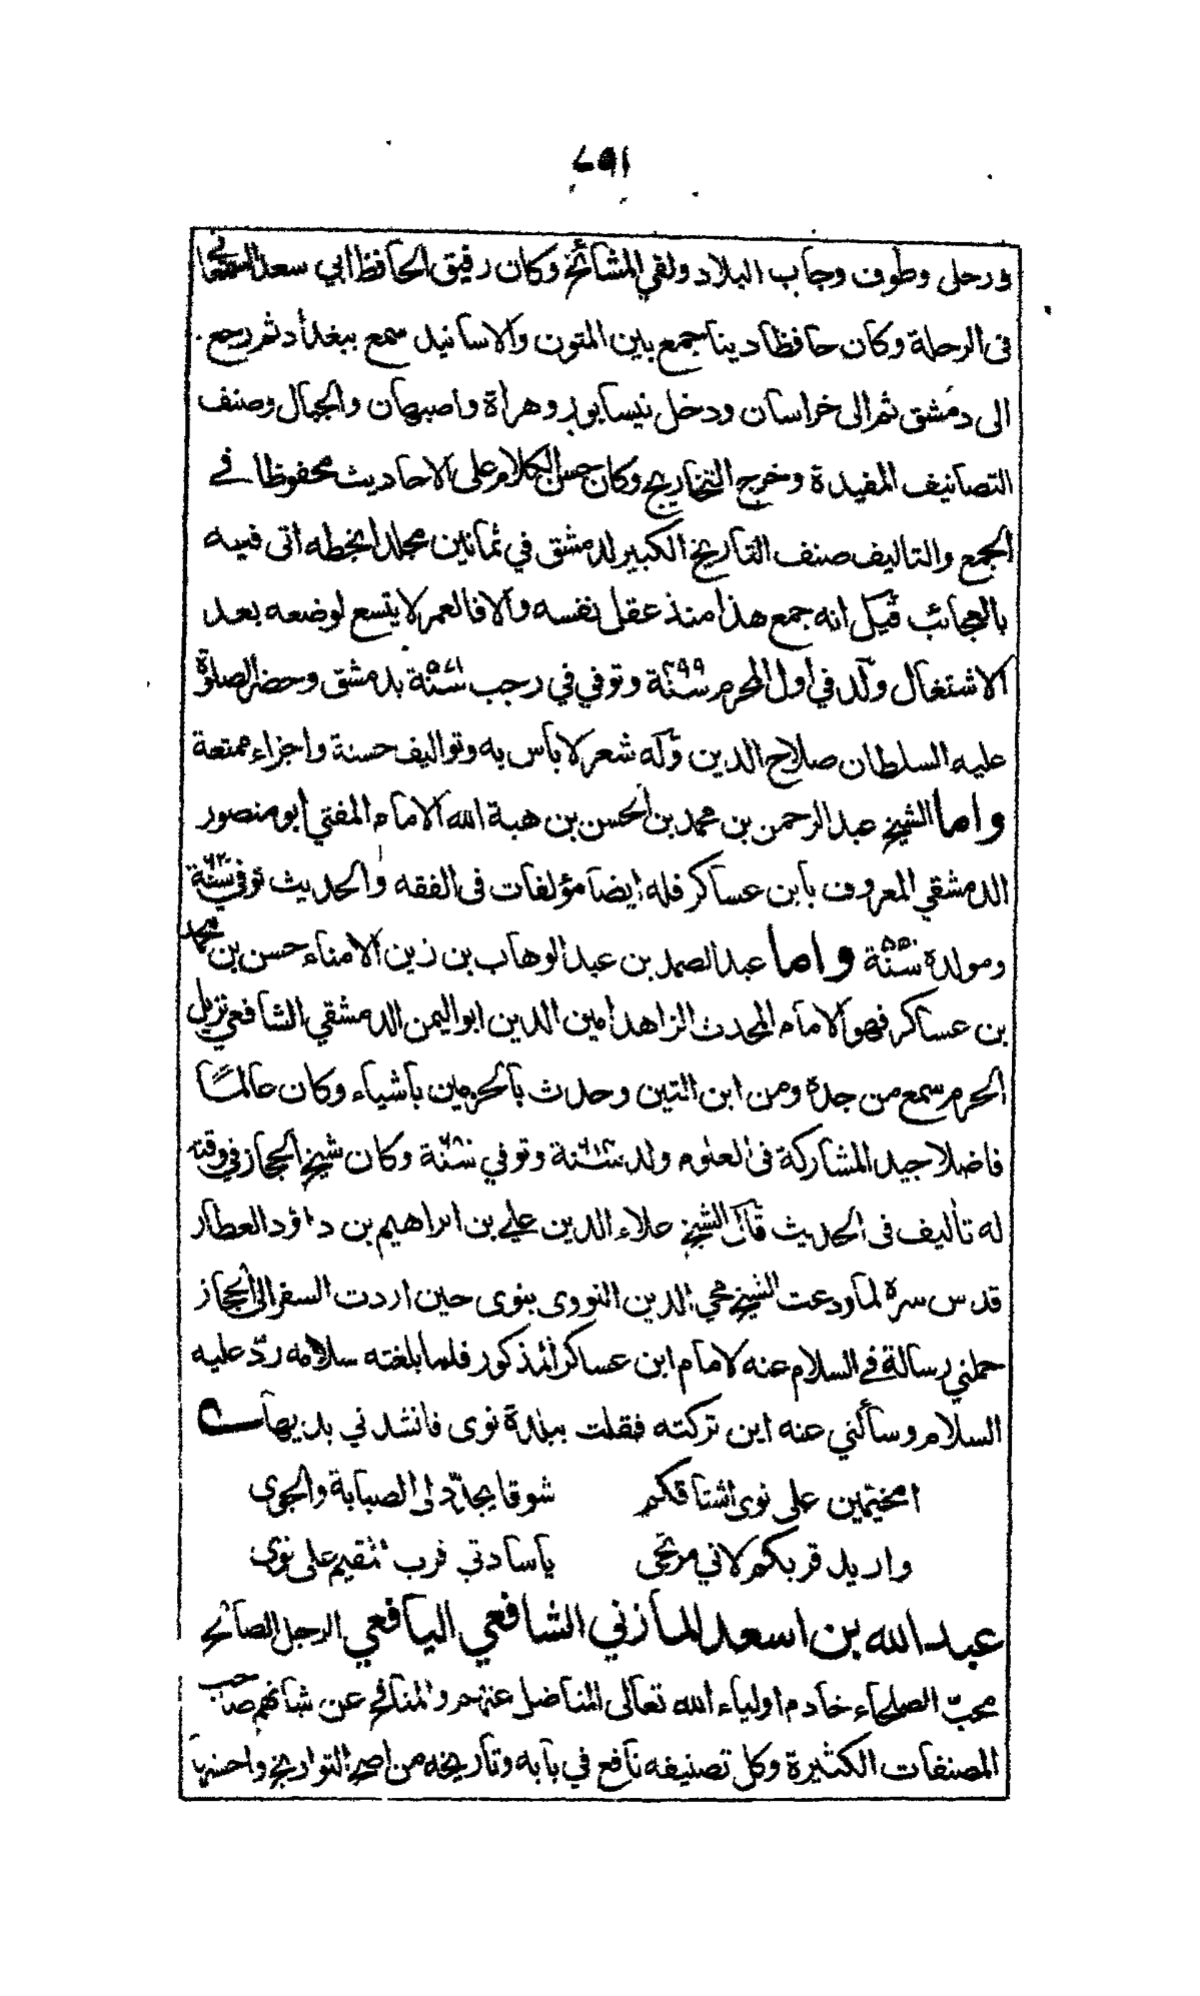 ورحل وطوف وجاب البلاد ولقي المشائخ وكان رفيق الحافظ ابي سعد السمعاني
في الرحلة وكان حافظا دينا جمع بين المتون والاسانيد سمع ببغداد ثم رجع
الى دمشق ثم الى خراسان ودخل نيسابور وهراة واصبهان والجبال وصنف
التصانيف المفيدة وخرج التخاريج وكان حسن الكلام على الاحاديث محفوظا في
الجمع والتاليف صنف التاريخ الكبير لدمشق في ثمانين مجلدا بخطه اتى فيه
بالعجائب قيل انه جمع هذا منذ عقل نفسه والا فالعمر لا يتسع لوضعه بعد
الاشتغال ولد في اول المحرم سنة ٤٩٩ وتوفي في رجب سنة ٥٧١ بدمشق وحضر الصلوة
عليه السلطان صلاح الدين وله شعر لا بأس به وتواليف حسنة واجزاء ممتعة
واما الشيخ عبد الرحمن بن محمد بن الحسن بن هبة الله الامام المفتي ابو منصور
الدمشقي المعروف بابن عساكر فله ايضا مؤلفات في الفقه والحديث توفي سنة ٦٢٠
ومولده سنة ٥٥٠ واما عبد الصمد بن عبد الوهاب بن زين الامناء حسن بن محمد
بن عساكر فهو الامام المحدث الزاهد امين الدين ابو اليمن الدمشقي الشافعي نزيل
الحرم سمع من جده ومن ابن التين وحدث بالحرمين باشياء وكان عالما
فاضلا جيد المشاركة في العلوم ولد سنة ٦١٤ وتوفي سنة وكان شيخ الحجاز في وقته
له تأليف في الحديث قال الشيخ علاء الدين علي بن ابراهيم بن داؤد العطار
قدس سره لما ودعت الشيخ محي الدين النووى بنوى حين اردت السفر الى الحجاز
حملني رسالة في السلام عنه لامام ابن عساكر المذكور فلما بلغته سلامه ردّ عليه
السلام وسألني عنه اين تركته فقلت ببلدة نوى فانشدني بديها
امخيّمين على نوى اشتاقكم شوقا يجدّد لى الصبابة والجوى
واريد قربكم لاني مرتجى يا سادتي قرب المقيم على نوى
عبد الله بن اسعد المازني الشافعي اليافعي الرجل الصالح
محبّ الصلحاء خادم اولياء الله تعالى المناضل عنهم والمنافح عن شانهم صاحب
المصنفات الكثيرة وكل تصنيفه نافع في بابه وتاريخه من اصح التواريخ واحسنها